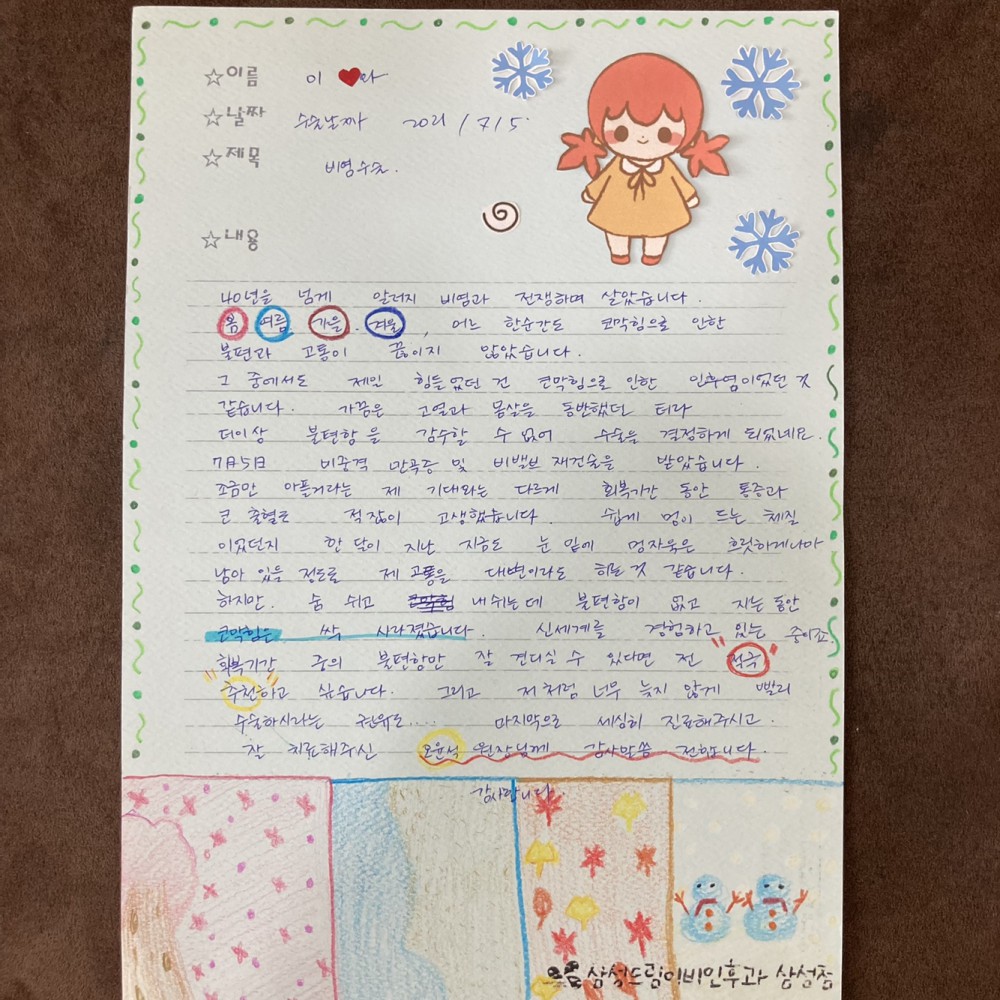 ☆이름 이 ♥라
☆날짜 수술날짜 2021 / 7 / 5.
☆제목 비염수술.
☆내용
40년을 넘게 알러지 비염과 전쟁하며 살았습니다.
봄 여름 가을. 겨울, 어느 한순간도 코막힘으로 인한
불편과 고통이 끊이지 않았습니다.
그 중에서도 제인 힘들었던 건 코막힘으로 인한 인후염이었던 것
같습니다. 가끔은 고열과 몸살을 동반했던 터라
더이상 불편함을 감수할 수 없어 수술을 결정하게 되었네요.
7月5日 비중격 만곡증 및 비밸브 재건술을 받았습니다.
조금만 아플거라는 제 기대와는 다르게 회복기간 동안 통증과
코 출혈로 적잖이 고생했습니다. 쉽게 멍이 드는 체질
이었던지 한 달이 지난 지금도 눈 밑에 멍자욱은 흐릿하게나마
남아 있을 정도로 제 고통을 대변이라도 하는 것 같습니다.
하지만. 숨 쉬고 내쉬는데 불편함이 없고 자는 동안
코막힘은 싹 사라졌습니다. 신세계를 경험하고 있는 중이죠.
회복기간 중의 불편함만 잘 견디실 수 있다면 전 "적극"
"추천"하고 싶습니다. 그리고 저처럼 너무 늦지 않게 빨리
수술하시라는 권유도.... 마지막으로 세심히 진료해주시고.
잘 치료해주신 오윤석 원장님께 감사말씀 전합니다.
감사합니다.
삼성드림이비인후과 삼성점